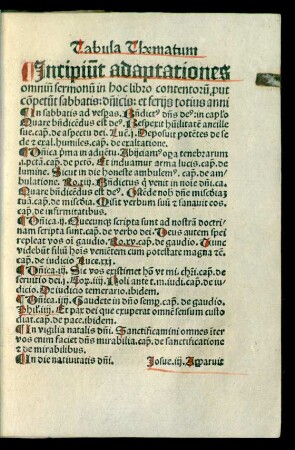 Tabula Thematum
Incipiũt adaptationes
omniũ sermonũ in hoc libro contentorũ, put
cõpetũt sabbatis: dñicis: et ferijs totius anni
In sabbatis ad vespas. Bñdict⁹ dñs de⁹: in cap̃lo
Quare bñdicẽdus est de⁹. Respexit hũilitatẽ ancille
sue. cap̃. de aspectu dei. Luc. j. Deposuit potẽtes de se
de ⁊ exal. humiles. cap̃. de exaltatione.
Dñica p̃ma in aduẽtu. Abijciam⁹ oꝑa tenebrarum
.i. pctã. cap̃. de pctõ. Et induamur arma lucis. cap̃. de
lumine. Sicut in die honeste ambulem⁹. cap̃. de am-
bulatione. Ro. xiij. Bñdictus q̃ venit in noĩe dñi. ca.
Quare bñdicẽdus est de⁹. Ostẽde nob̃ dñe miscðiaȝ
tuã. cap̃. de miscðia. Misit verbum suũ ⁊ sanauit eos.
cap̃. de infirmitatibus.
Dñica. ij. Quecunqȝ scripta sunt ad nostrã doctri-
nam scripta sunt. cap̃. de verbo dei. Deus autem spei
repleat vos oĩ gaudio. Ro. xv. cap̃. de gaudio. Tunc
videbũt filiũ hoĩs veniẽtem cum potestate magna ⁊c̃.
cap̃. de iudicio. Luce. xxj.
Dñica. iij. Sic vos existimet hõ vt mi. chr̃i. cap̃. de
seruitio dei. j. Noli ante t̃. m. iudi. cap̃. de iu-
dicio. De iudicio temerario. ibidem.
Dñica. iiij. Gaudete in dño semp̃. cap̃. de gaudio.
Phil. iiij. Et pax dei que exuperat omnẽ sensum custo
diat. cap̃. de pace. ibidem.
In vigilia natalis dñi. Sanctificamini omnes iter
vos enim faciet dñs mirabilia. cap̃. de sanctificatione
⁊ de mirabilibus. Josue. iij.
In die natiuitatis dñi. Apparuit